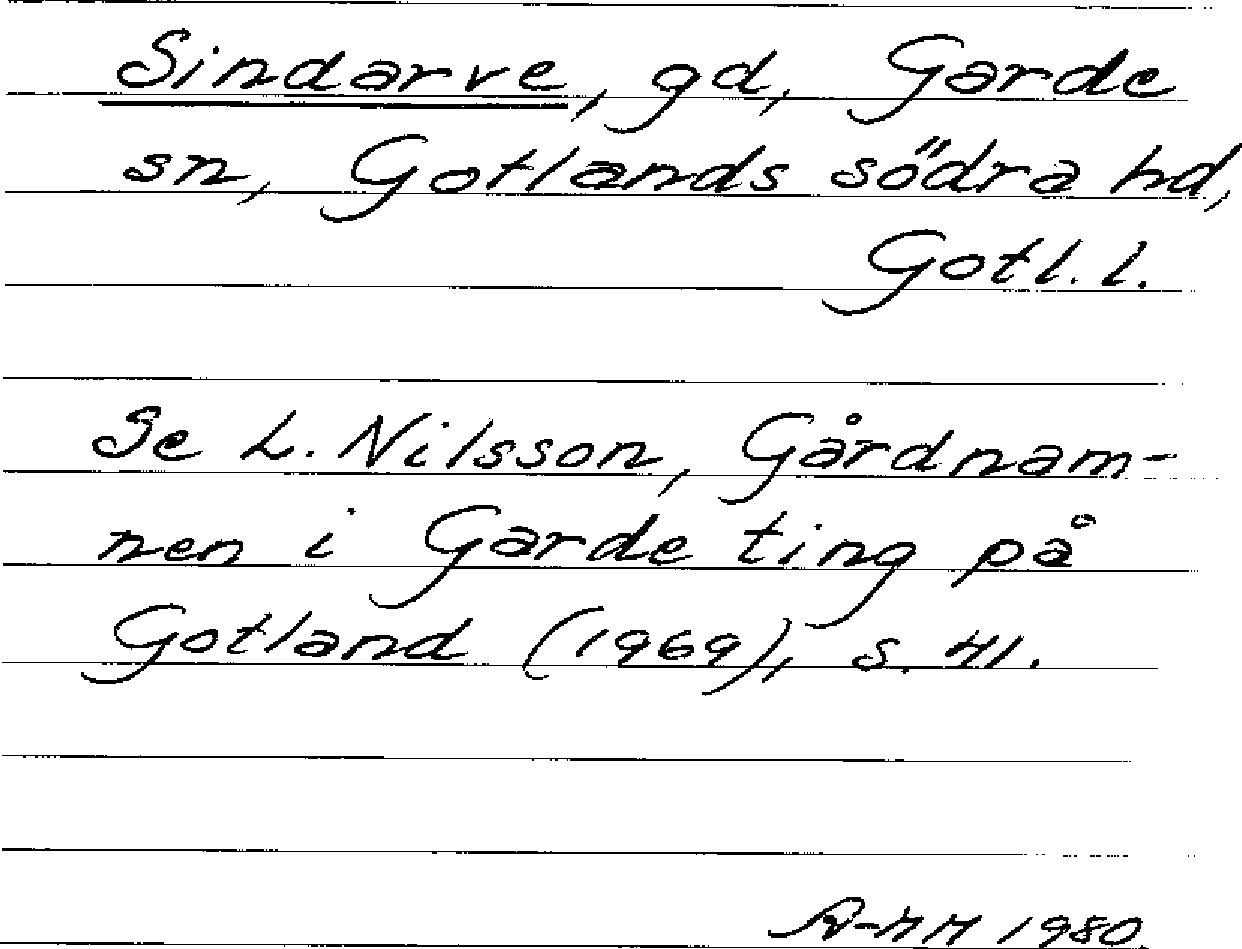 Sindarve, gd, Garde
sn, Gotlands södra hd,
Gotl. l.
Se L. Nilsson, Gårdnam-
nen i Garde ting på
Gotland (1969), s. 41.
1980